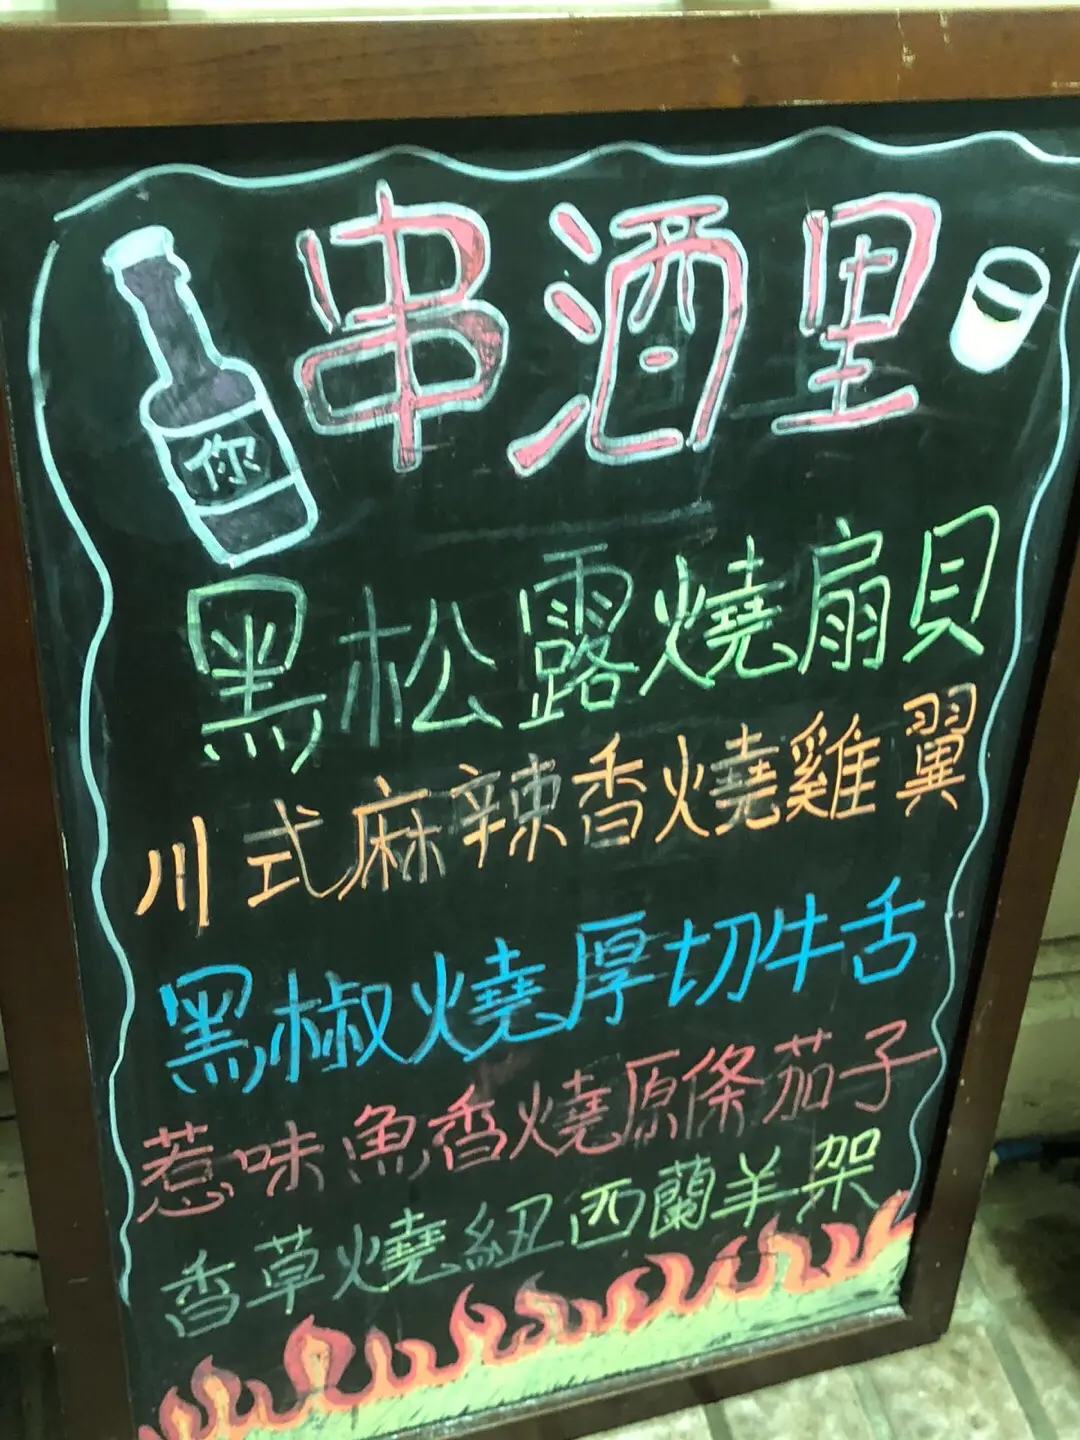 串酒里
你
黑松露燒扇貝
川式麻辣香燒雞翼
黑椒燒厚切牛舌
惹味魚香燒原條茄子
香草燒紐西蘭羊架